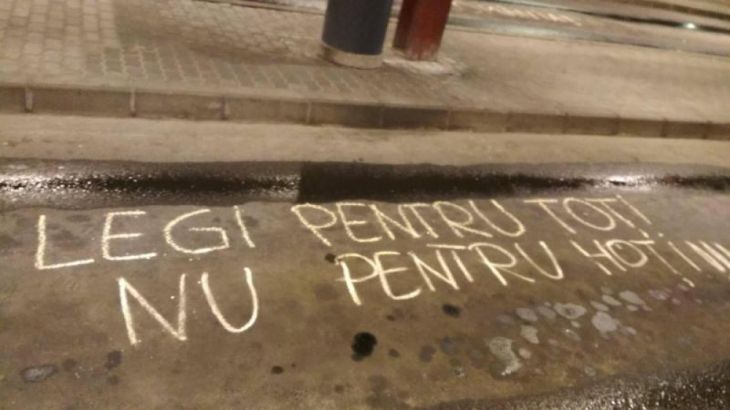 LEGI PENTRU TOȚI
NU PENTRU HOȚI!!!